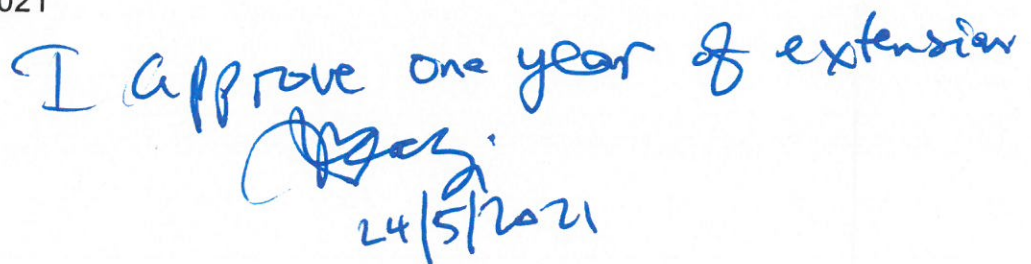 021
I approve one year of extension
24/5/2021